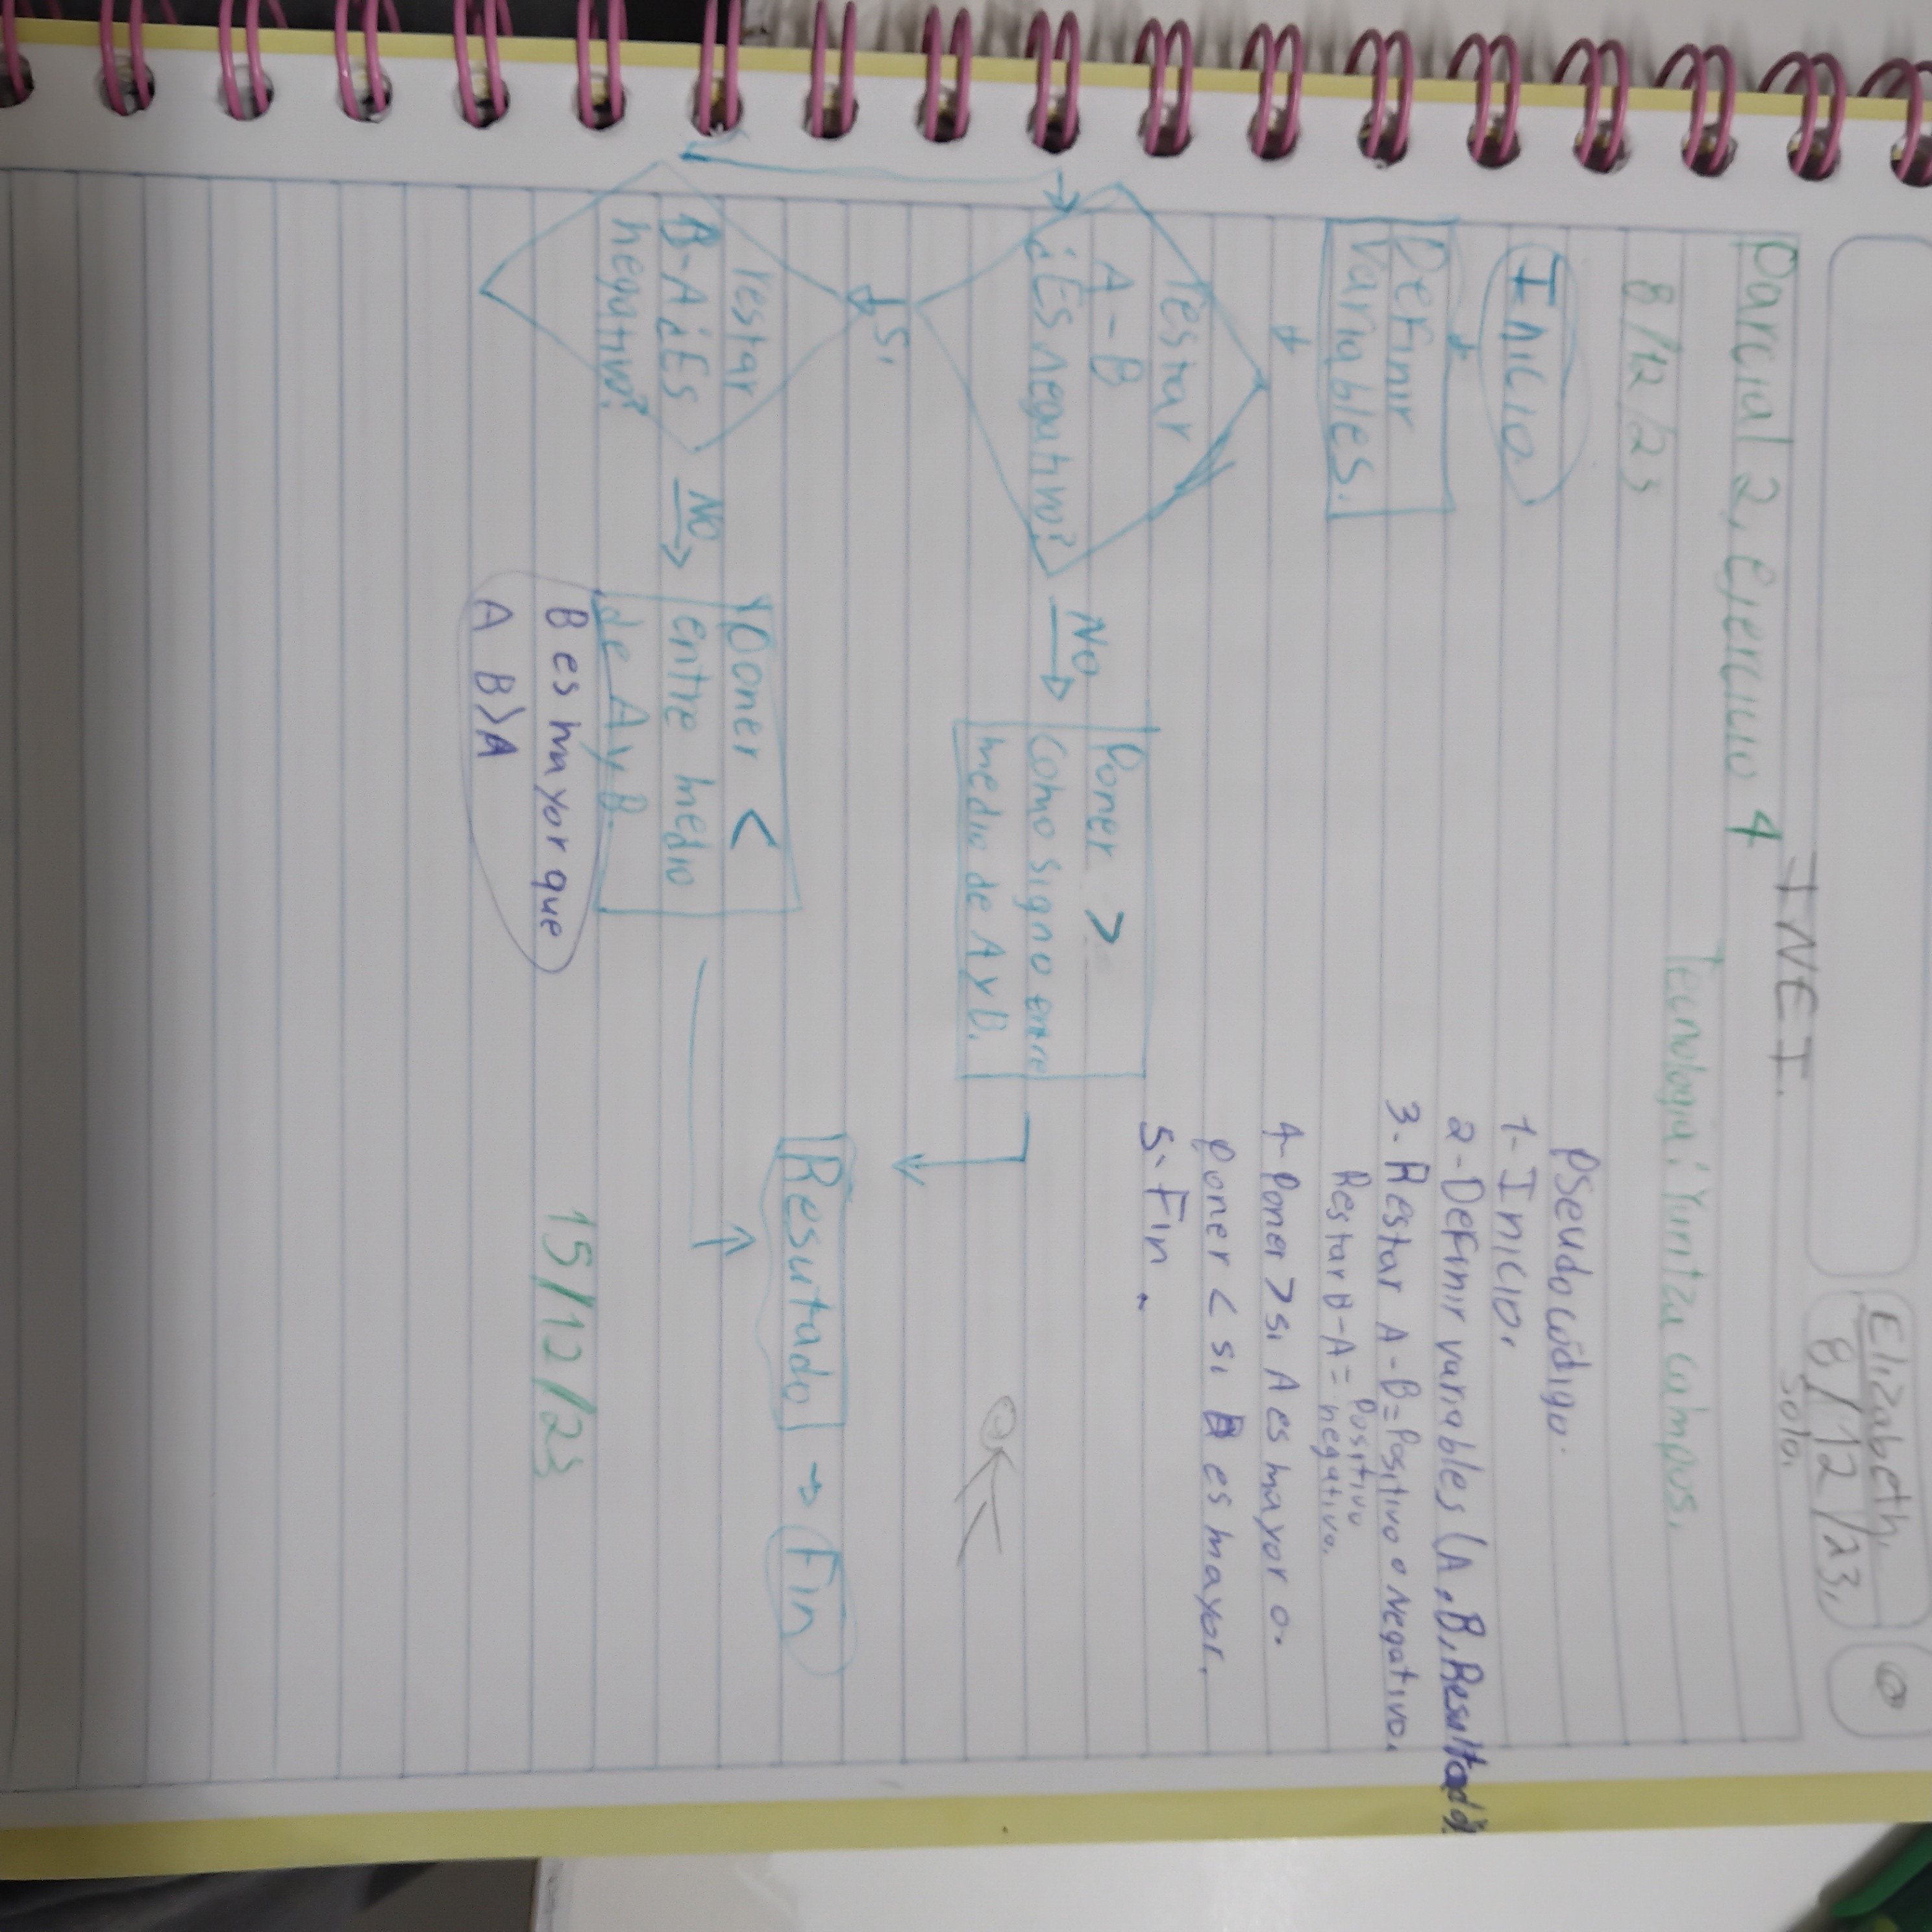 Elizabeth.
8/12/23.
solo.
INET.
Parcial 2, Ejercicio 4
Tecnologia: Yuritza campos.
8/12/23
Inicio
Definir
Variables.
restar
A-B
¿Es negativo?
No
Poner >
como signo entre
medio de A y B.
Si
restar
B-A ¿Es
negativo?
NO
Poner <
entre medio
de A y B.
B es mayor que
A B>A
Resultado → Fin
15/12/23
Pseudocódigo.
1- Inicio.
2- Definir variables (A, B, Resultado)
3- Restar A-B= Positivo o Negativo.
Restar B-A= Positivo
negativo.
4- Poner > si A es mayor o.
Poner < si B es mayor.
5- Fin.